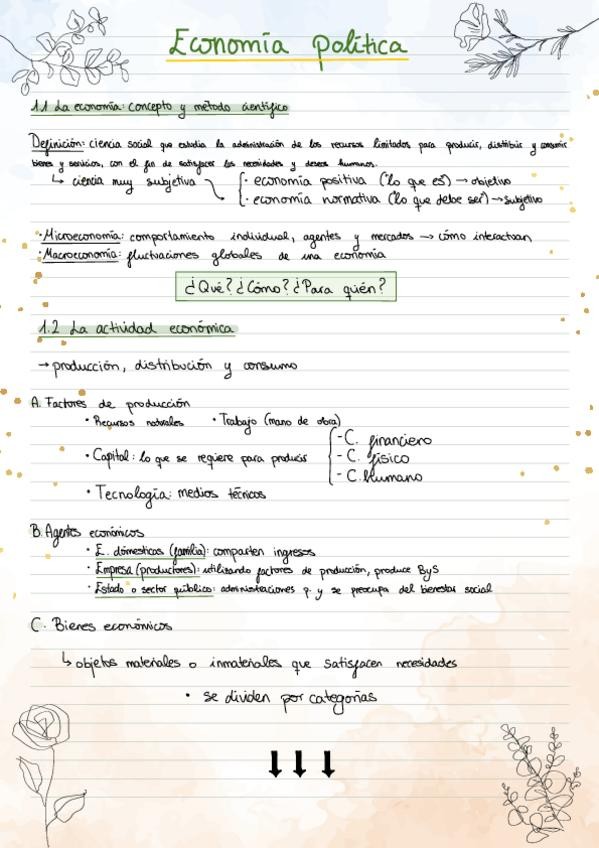 Economía política
1.1 La economía: concepto y método científico
Definición: ciencia social que estudia la administración de los recursos limitados para producir, distribuir y consumir
bienes y servicios, con el fin de satisfacer las necesidades y deseos humanos.
↳ ciencia muy subjetiva { · economía positiva ("lo que es") → objetivo
· economía normativa ("lo que debe ser") → subjetivo
· Microeconomía: comportamiento individual, agentes y mercados → cómo interactúan
· Macroeconomía: fluctuaciones globales de una economía
¿Qué? ¿Cómo? ¿Para quién?
1.2 La actividad económica
→ producción, distribución y consumo
A. Factores de producción
· Recursos naturales · Trabajo (mano de obra)
· Capital: lo que se requiere para producir { - C. financiero
- C. físico
- C. humano
· Tecnología: medios técnicos
B. Agentes económicos
· E. domésticas (familia): comparten ingresos
· Empresa (productores): utilizando factores de producción, produce ByS
· Estado o sector público: administraciones p. y se preocupa del bienestar social
C. Bienes económicos
↳ objetos materiales o inmateriales que satisfacen necesidades
· se dividen por categorías
↓ ↓ ↓